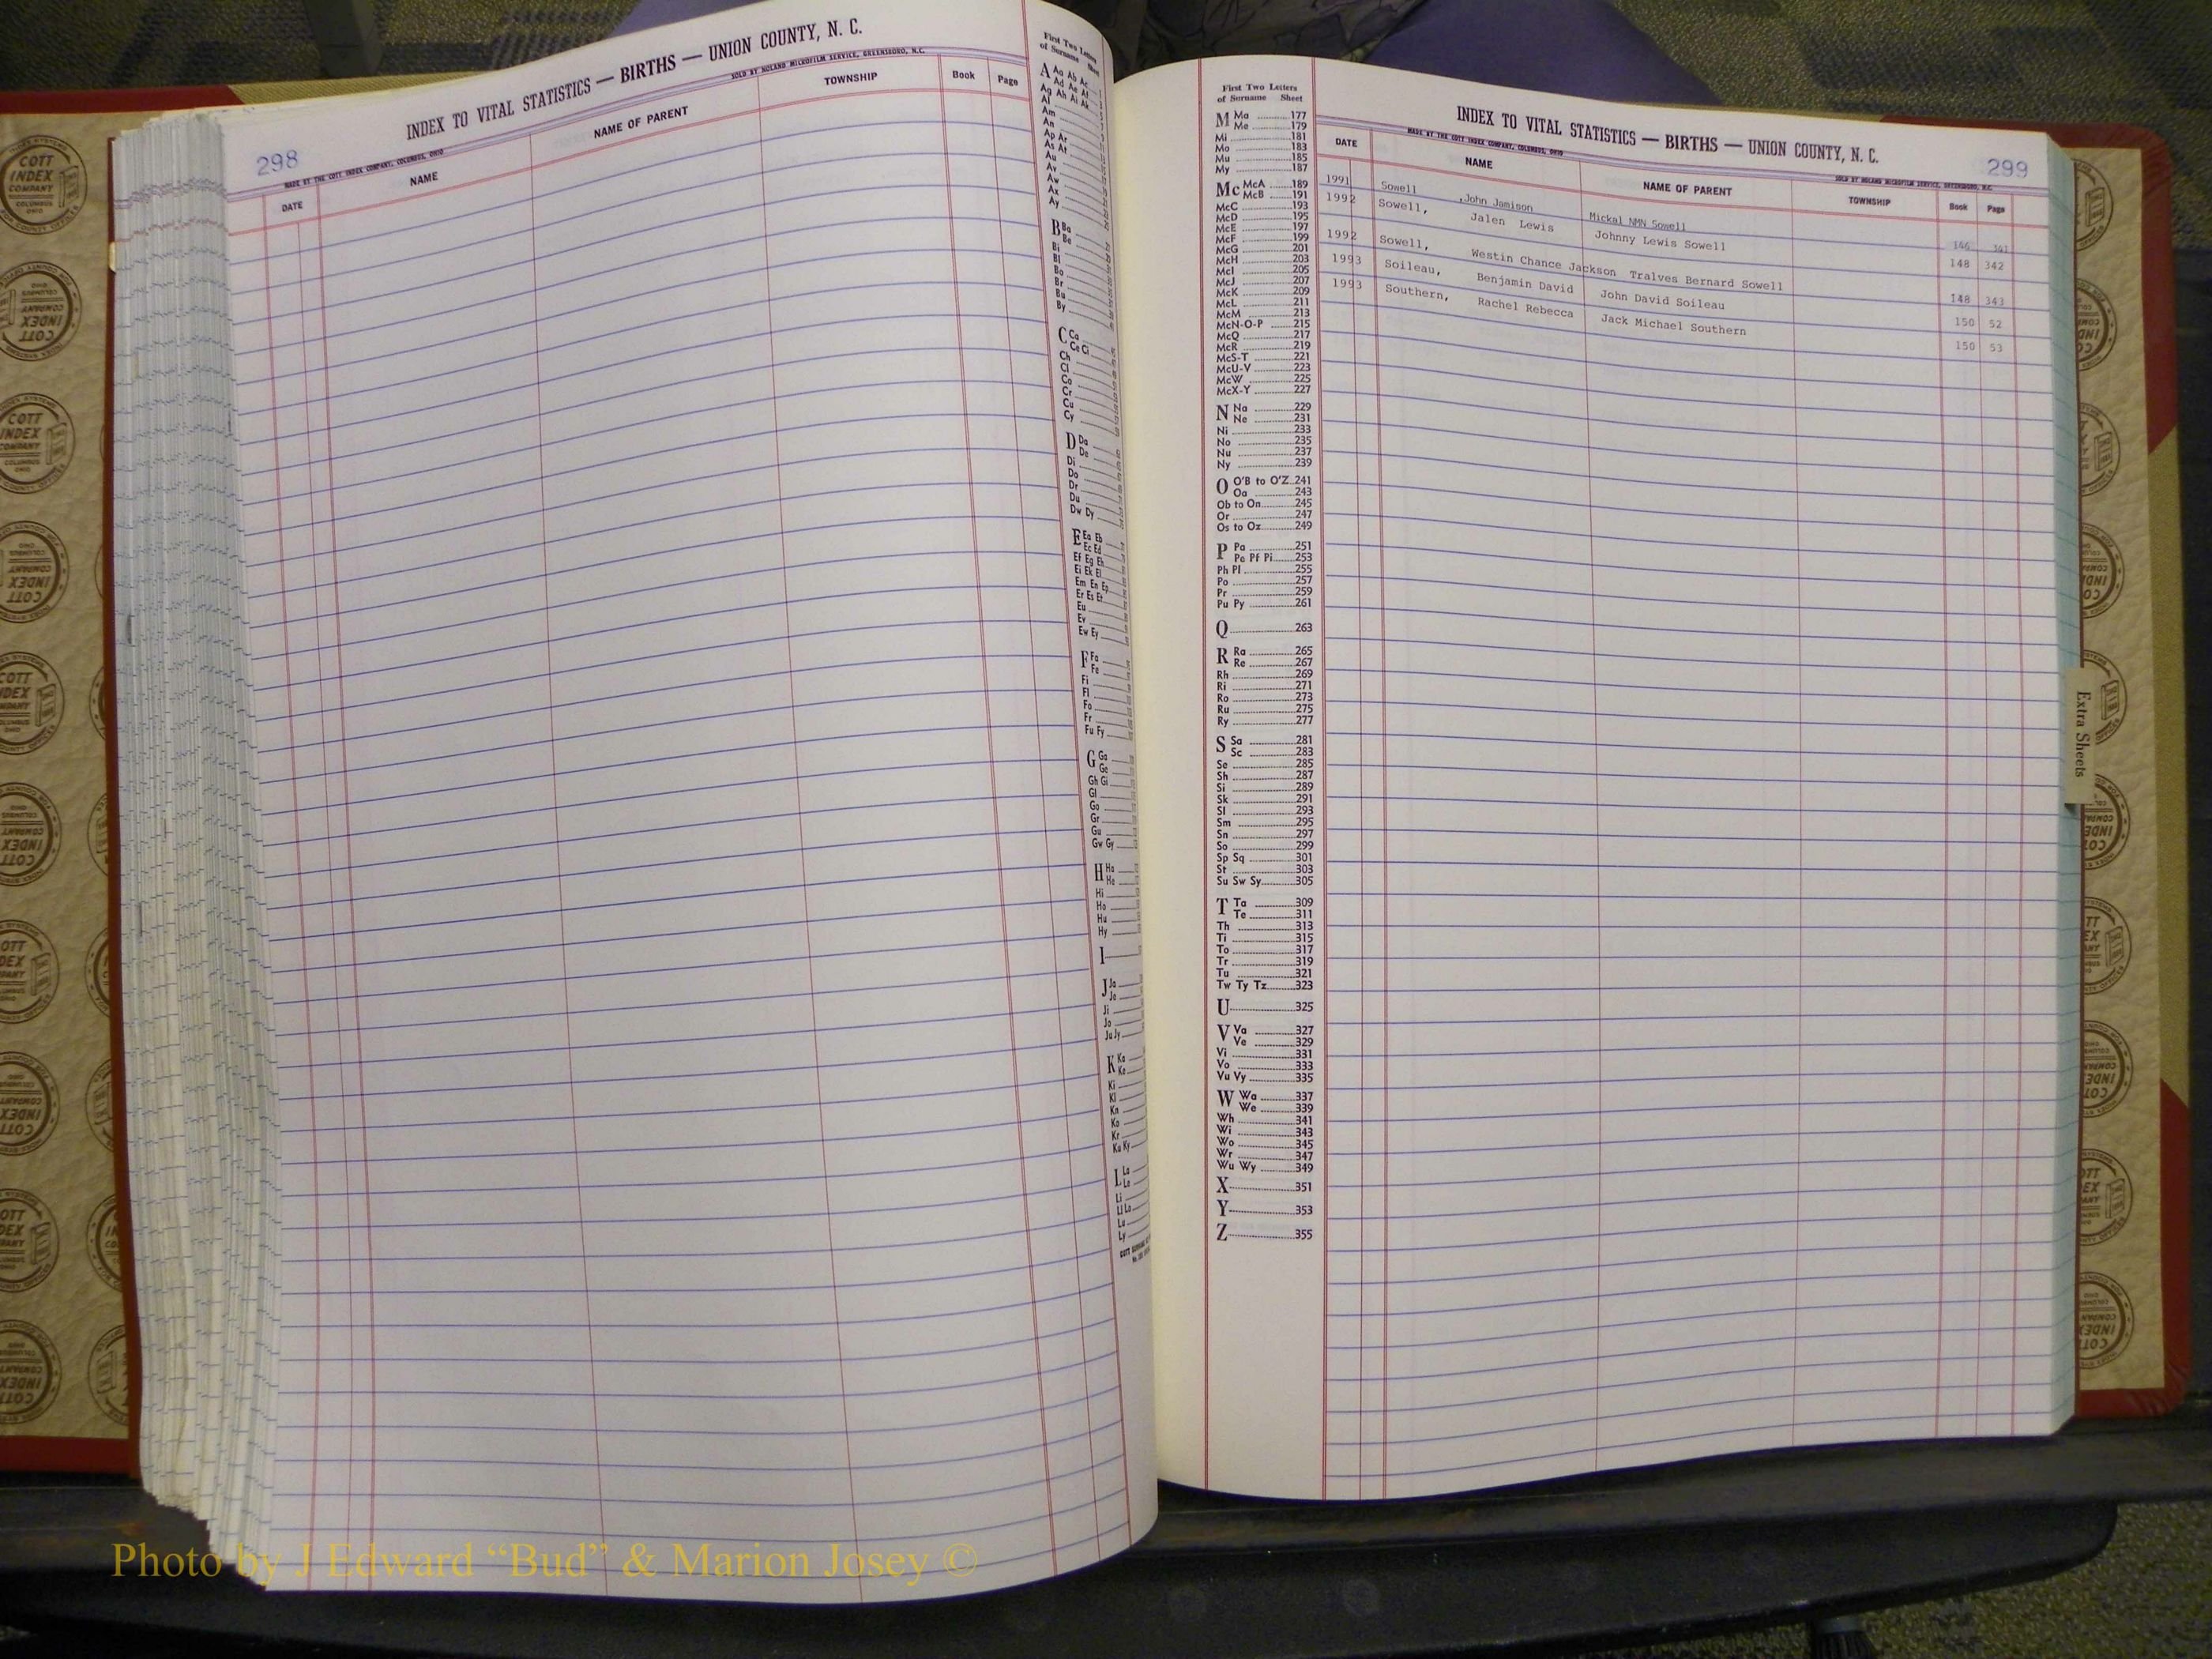 298
INDEX TO VITAL STATISTICS — BIRTHS — UNION COUNTY, N. C.
MADE BY THE COTT INDEX COMPANY, COLUMBUS, OHIO
SOLD BY NOLAND MICROFILM SERVICE, GREENSBORO, N.C.
DATE NAME NAME OF PARENT TOWNSHIP Book Page
First Two Letters
of Surname
A Aa Ab Ac
Ad Ae Af
Ag Ah Ai Ak
Al
Am
An
Ap Ar
As At
Au
Av
Aw
Ax
Ay
B Ba
Be
Bi
Bl
Bo
Br
Bu
By
C Ca
Ce Ci
Ch
Cl
Co
Cr
Cu
Cy
D Da
De
Di
Do
Dr
Du
Dw Dy
E Ea Eb
Ec Ed
Ef Eg Eh
Ei Ek El
Em En Ep
Er Es Et
Eu
Ev
Ew Ey
F Fa
Fe
Fi
Fl
Fo
Fr
Fu Fy
G Ga
Ge
Gh Gi
Gl
Go
Gr
Gu
Gw Gy
H Ha
He
Hi
Ho
Hu
Hy
I
J Ja
Je
Ji
Jo
Ju Jy
K Ka
Ke
Ki
Kl
Kn
Ko
Kr
Ku Ky
L La
Le
Li
Ll Lo
Lu
Ly
First Two Letters
of Surname Sheet
M Ma 177
Me 179
Mi 181
Mo 183
Mu 185
My 187
Mc McA 189
McB 191
McC 193
McD 195
McE 197
McF 199
McG 201
McH 203
McI 205
McJ 207
McK 209
McL 211
McM 213
McN-O-P 215
McQ 217
McR 219
McS-T 221
McU-V 223
McW 225
McX-Y 227
N Na 229
Ne 231
Ni 233
No 235
Nu 237
Ny 239
O O'B to O'Z 241
Oa 243
Ob to On 245
Or 247
Os to Oz 249
P Pa 251
Pe Pf Pi 253
Ph Pl 255
Po 257
Pr 259
Pu Py 261
Q 263
R Ra 265
Re 267
Rh 269
Ri 271
Ro 273
Ru 275
Ry 277
S Sa 281
Sc 283
Se 285
Sh 287
Si 289
Sk 291
Sl 293
Sm 295
Sn 297
So 299
Sp Sq 301
St 303
Su Sw Sy 305
T Ta 309
Te 311
Th 313
Ti 315
To 317
Tr 319
Tu 321
Tw Ty Tz 323
U 325
V Va 327
Ve 329
Vi 331
Vo 333
Vu Vy 335
W Wa 337
We 339
Wh 341
Wi 343
Wo 345
Wr 347
Wu Wy 349
X 351
Y 353
Z 355
INDEX TO VITAL STATISTICS — BIRTHS — UNION COUNTY, N. C.
299
MADE BY THE COTT INDEX COMPANY, COLUMBUS, OHIO
SOLD BY NOLAND MICROFILM SERVICE, GREENSBORO, N.C.
DATE NAME NAME OF PARENT TOWNSHIP Book Page
1991 Sowell John Jamison Mickal NMN Sowell 146 341
1992 Sowell, Jalen Lewis Johnny Lewis Sowell 148 342
1992 Sowell, Westin Chance Jackson Tralves Bernard Sowell 148 343
1993 Soileau, Benjamin David John David Soileau 150 52
1993 Southern, Rachel Rebecca Jack Michael Southern 150 53
Extra Sheets
COTT
INDEX
COMPANY
COLUMBUS
OHIO
Photo by J Edward “Bud” & Marion Josey ©